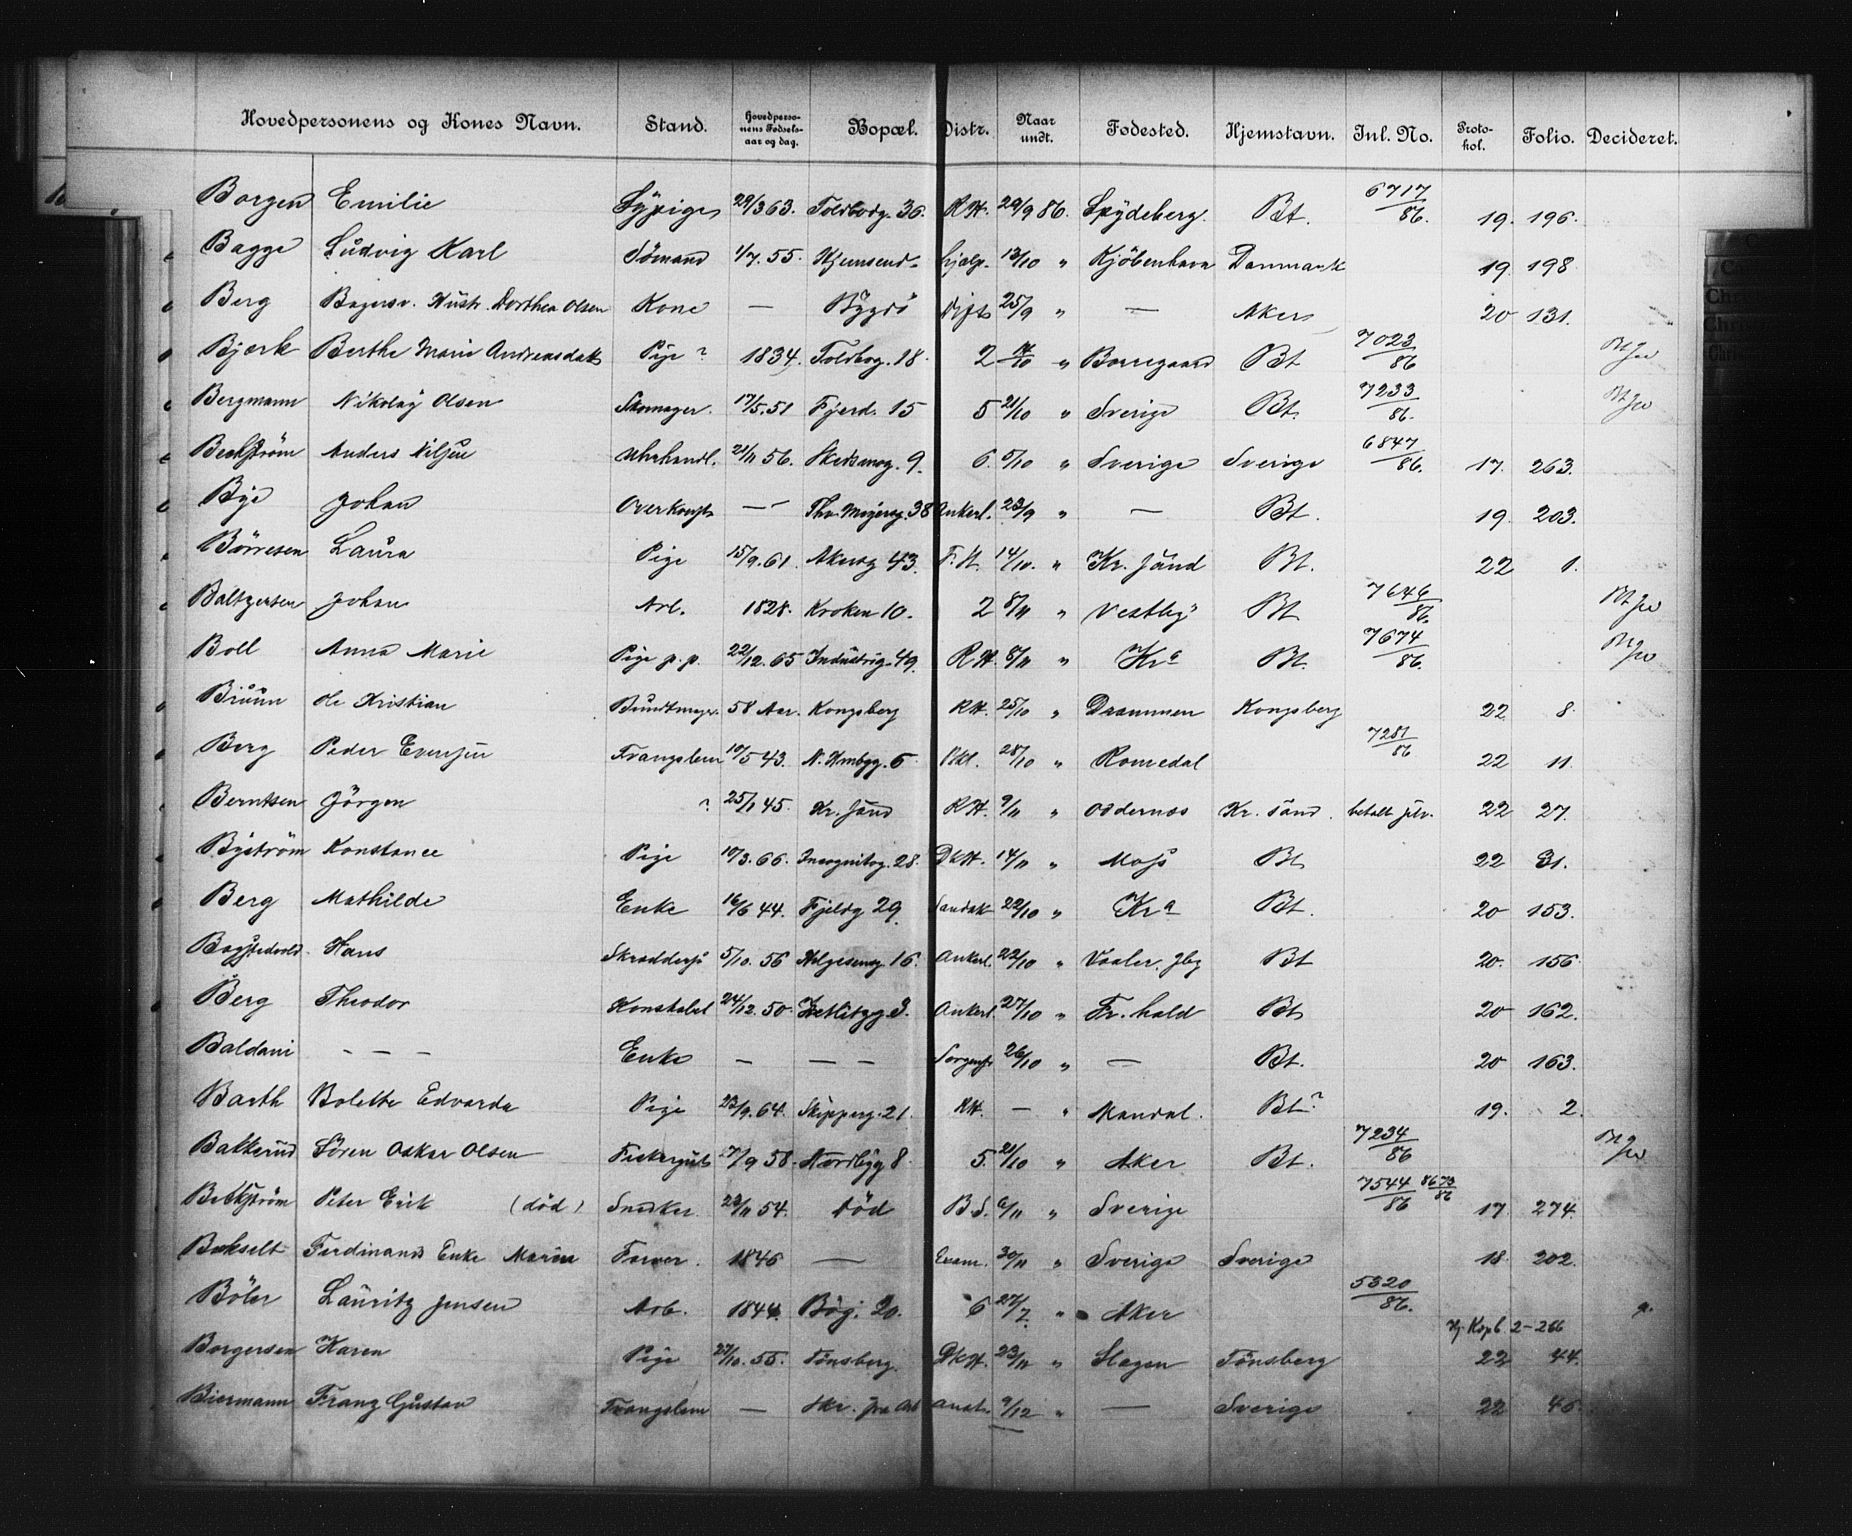 Hovedpersonens og Kones Navn. Stand. Hovedperso-nens Fødsels-aar og dag. Bopæl. Distr. Naar undt. Fodested. Hjemstavn. Inl. No. Proto-kol. Folio. Decideret.
Borgen Emilie Sypige 29/3 63. Toldbodg. 36. R.H. 29/9 86. Spydeberg. Bt. 6717/86. 19. 196.
Bagge Ludvig Karl Sømand 1/7. 55. Hjemsend. hjælp. 13/10 " Kjöbenhavn Danmark 19 198
Berg Hustr. Dorthea Olsen Kone — Bygdö 25/9 " — Aker 20 131.
Bjærk Berthe Marie Andreasdatt Pige ? 1834. Toldbog. 18. 2 " Borregaard Bt 7023/86
Bergmann Nikolay Olsen Skomager. 17/5. 51 Fjerd. 15 5 21/10 " Sverige Bt. 7233/86.
Beckström Anders Niljsen Uhrhandl. 21/11 56. Skedsmog. 9. 6. 5/10 " Sverige Sverige 6847/86. 17. 263.
Bye Johan Overkonst — Thv. Meyersg. 38 Ankerl. 23/9 " — Bt. 19. 203.
Börresen Laura Pige 15/9. 61. Akersg 43. F. H. 14/10. " Kr. sand Bt. 22 1.
Baltzersen Johan Arb. 1828. Kroken 10. 2 8/11 " Vestby Bt 7646/86.
Boll Anna Marie Pige p. p. 22/12. 65 Industrig. 49. R.H. 8/11 " Kra Bt. 7674/86.
Bruun Ole Kristian Bundtmager. 58 Aar. Kongsberg R.H. 25/10 " Drammen Kongsberg 22 8.
Berg Peder Evensen Trangslem 10/5 43. N. Hmbyg. 5 28/10 " Romedal 7281/86 22 11.
Berntsen Jörgen ? 25/1 45. Kr. sand R.H. 9/11 " Oddernæs Kr. sand. betalt 22 27.
Byström Konstance Pige 10/3. 66. Incognitog. 28. DkH. 14/11 " Moss Bt 22 31.
Berg Mathilde Enke 16/6 44. Fjeldg 29. Sandak 22/10 " Kra Bt. 20 153.
Hans Skrædders 5/10. 56 Helgesensg. 16. Ankerl. 22/10 " Vaaler. Bt 20. 156.
Berg Theodor Konstabel 24/12. 50. Zetlitzg. 3. Ankerl. 27/10 " Fr. hald Bt 20 162.
Baldani — — — Enke — — — Sorgenfr 26/10 " — Bt. 20 163.
Barth Bolette Edvarda Pige 23/9. 64. Skipperg. 21. R.H. — " Mandal. Bt ? 19. 2.
Bakkerud Sören Oskar Olsen Viskergut 27/9 58. Nordbyg 8. 5. 21/10 " Aker Bt. 7234/86
Beckström Peter Erik (död) Snedker. 23/11 54. Död B.S. 6/11 " Sverige 7544/86 8673/86 17 274.
Ferdinands Enke Maria Farver. 1846 — 30/11 " Sverige Sverige 18. 202.
Böler Lauritz Jensen Arb. 1844. Bög. 20. 6 27/7. " Aker 5320/86.
Hj. Kopb 2-266
Borgersen Karen Pige 27/10. 55. Tønsberg. DkH. 23/11 " Slagen Tønsberg 22 44.
Biermann Franz Gustav Trangslem — Skr. fra Arb anst. 9/12 " — Sverige 22 45.